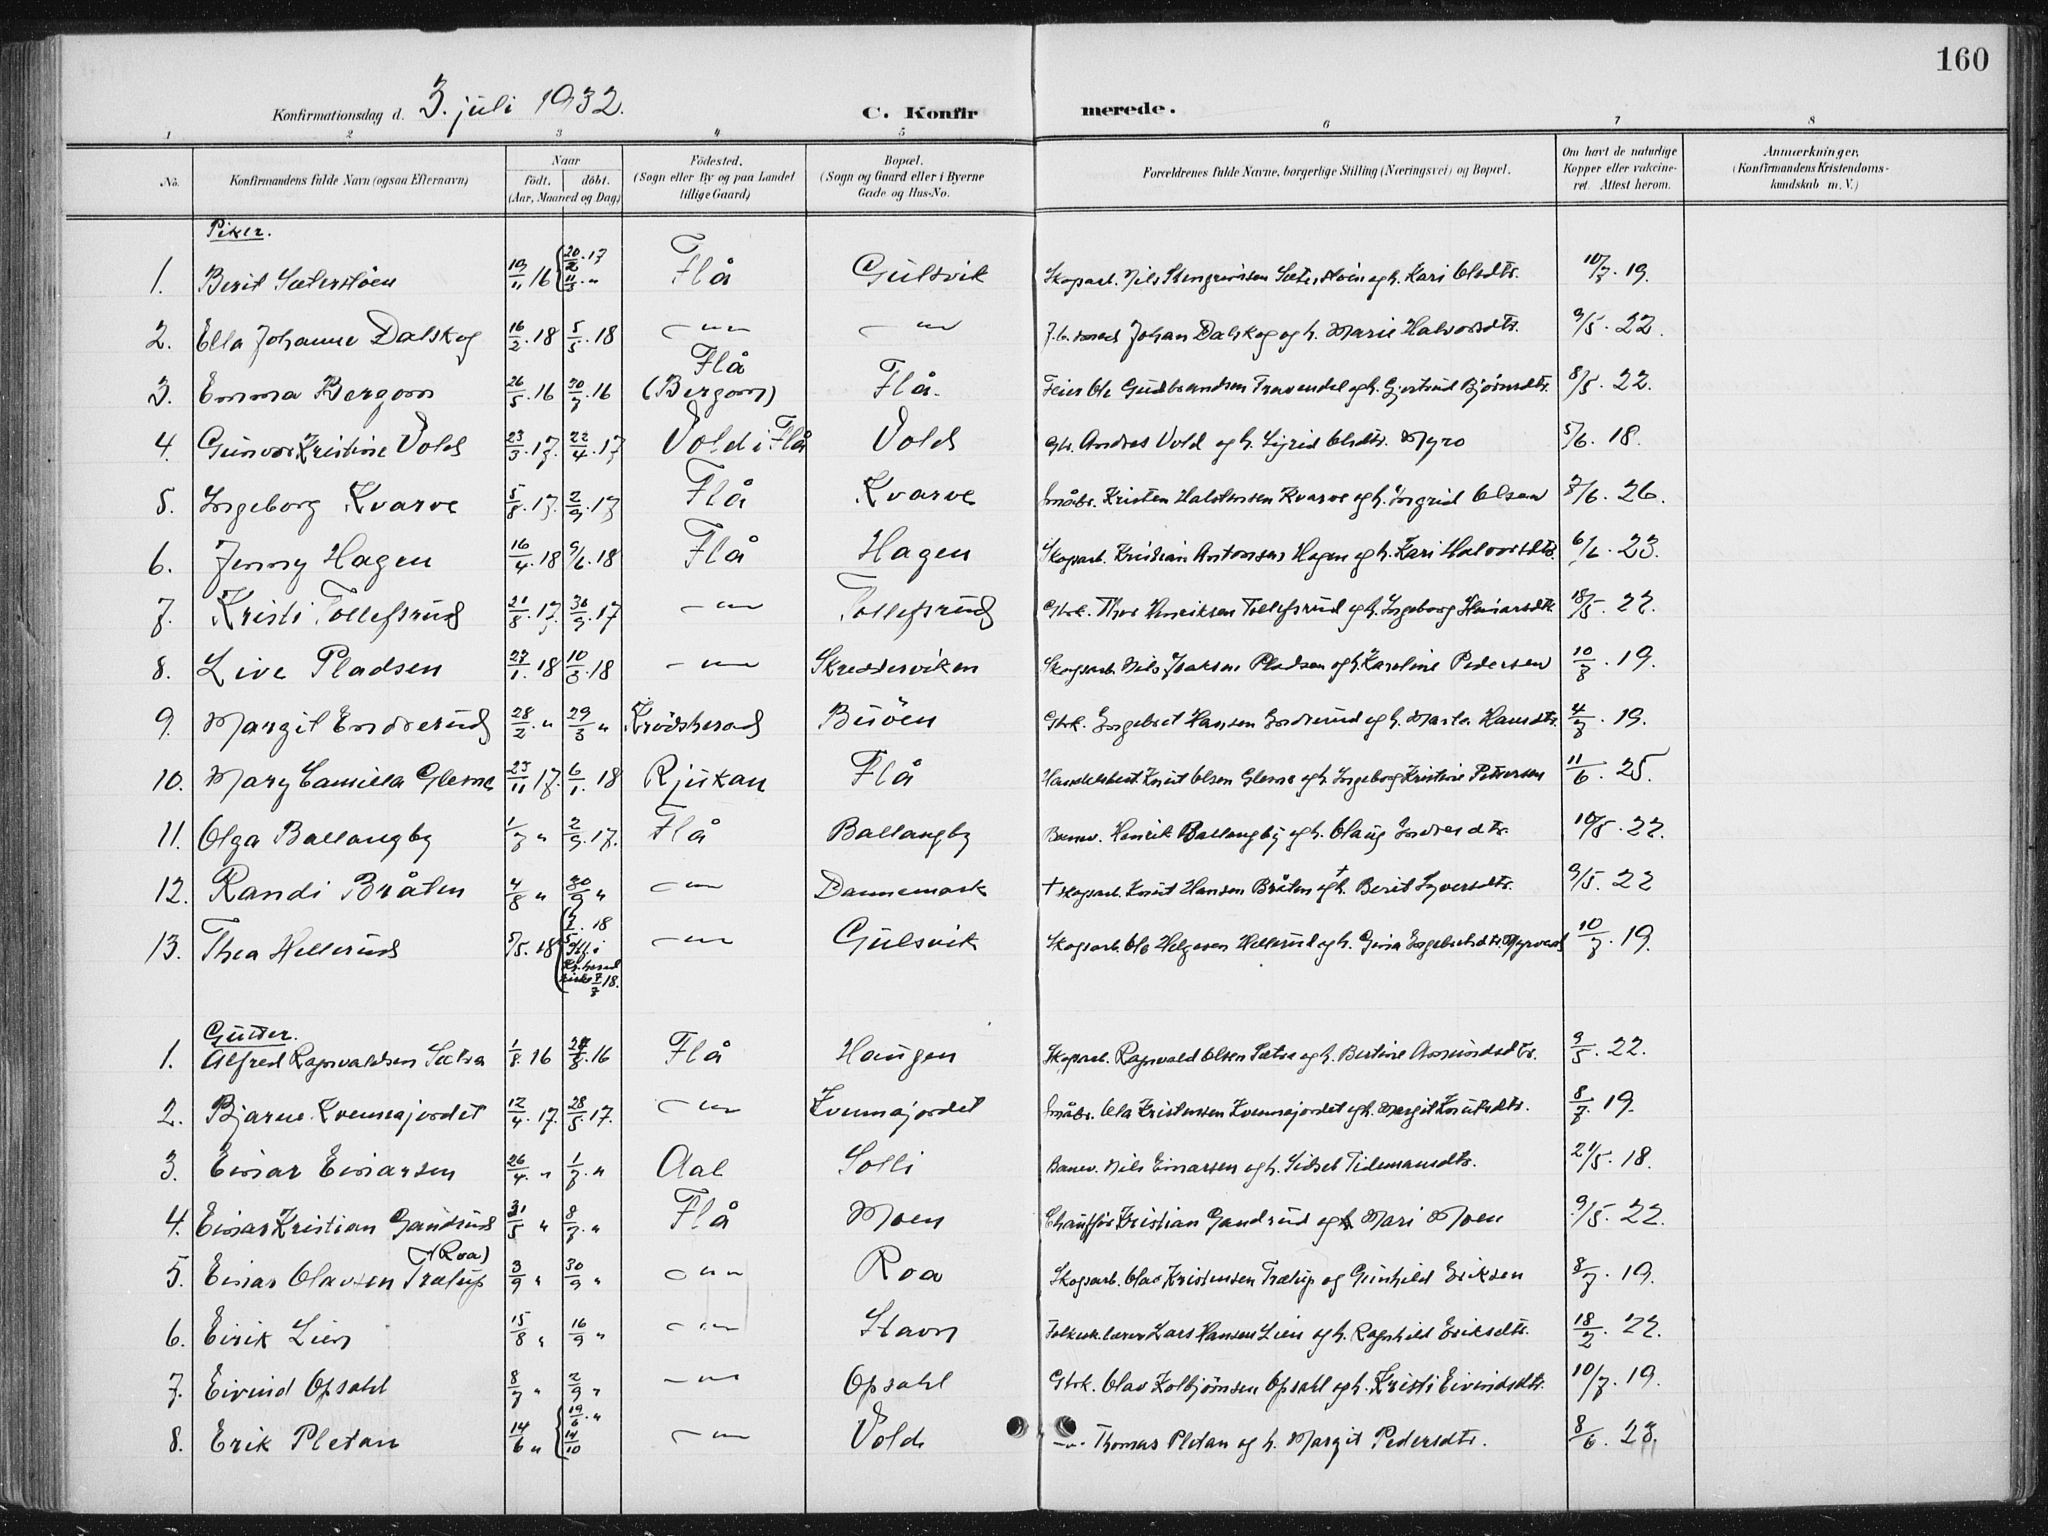 160
Konfirmationsdag d. 3. juli 1932.
C. Konfir merede.
1 2 3 4 5 6 7 8
No.
Konfirmandens fulde Navn (ogsaa Efternavn)
Naar
födt. döbt.
(Aar, Maaned og Dag)
Födested.
(Sogn eller By og paa Landet
tillige Gaard)
Bopæl.
(Sogn og Gaard eller i Byerne
Gade og Hus-No.
Forældrenes fulde Navne, borgerlige Stilling (Næringsvei) og Bopæl.
Om havt de naturlige
Kopper eller vakcine-
ret. Attest herom.
Anmærkninger,
(Konfirmandens Kristendoms-
kundskab m. V.)
Piker.
1. Berit Sæterstöen 19/11 16 20/2 17 11/3 " Flå Gulsvik Skogsarb. Nils og h. Kari Olsdtr. 10/7. 19.
2. Ella Johanne Dalskog 16/2. 18 5/5. 18 —"— —"— Johan Dalskog og h. Marie Halvorsdtr. 9/5. 22.
3. Emma Bergom 26/5. 16 30/7. 16 Flå (Bergom) Flå. Feier Ole Gudbrandsen Travendal og h. Gjertrud Björnsdtr. 8/5. 22.
4. Gunvor Kristine Vold 23/3. 17. 22/4. 17 Vold i Flå Vold Andres Vold og h. Sigrid Olsdtr. Myro 5/6. 18.
5. Ingeborg Kvarve 5/8. 17. 2/9. 17 Flå Kvarve Småbr. Kristen Halstensen Kvarve og h. Ingrid Olsen 7/6. 26.
6. Jenny Hagen 16/4. 18 9/6. 18 Flå Hagen Skogsarb. Kristian Antonsen Hagen og h. Kari Halvorsdtr. 6/6. 23.
7. Kristi Tollefsrud 21/8. 17. 30/9. 17 —"— Tollefsrud Gbrk. Thor Henriksen Tollefsrud og h. Ingeborg 18/5. 22.
8. Live Pladsen 27/1. 18 10/3. 18 —"— Skreddersviken Skogsarb. Nils Pladsen og h. Karoline Pedersen 10/7. 19.
9. Margit Endrerud 28/2. " 29/3 " Krödsherad Buöen Gbrk. Ingebret Hansen Endrerud og h. Marta Hansdtr. 4/7. 19.
10. Mary Camilla Glesne 23/11 17. 6/1. 18 Rjukan Flå Knut Olsen Glesne og h. Ingeborg Kristine Pettersen 11/6. 25.
11. Olga Ballangby 1/7 " 2/9. 17. Flå Ballangby Banev. Henrik Ballangby og h. Olaug 10/5. 22.
12. Randi Bråten 4/8 " 30/9 " —"— Dannemark † Skogsarb. Knut Hansen Bråten og † h. Berit Syversdtr. 9/5. 22
13. Thea Hellerud 5/5. 18 18 7/7 18. —"— Gulsvik Skogsarb. Ole Helgesen Hellerud og h. Gina 10/7. 19.
Gutter.
1. Alfred Ragnvaldsen Sætra 1/8. 16 16 Flå Haugen Skogsarb. Ragnvald Olsen Sætra og h. Bertine Amundsdtr. 9/5. 22.
2. Bjarne Kvennajordet 12/4. 17. 28/5. 17. —"— Kvennajordet Småbr. Ola Kristensen Kvennajordet og h. Margit Knutsdtr. 8/7. 19.
3. Einar Einarsen 26/4. " 1/7. " Aal Solli Banev. Nils Einarsen og h. Sidsel Tidemansdtr. 21/5. 18.
4. Einar Kristian Gandrud 31/5 " 8/7. " Flå Moen Chauffør Kristian Gandrud og h. Mari Moen 9/5. 22.
5. Einar Olavsen Trælup (Roa) 3/9 " 30/9 " —"— Roa Skogsarb. Olav Kristensen Trælup og Gunhild Eriksen 8/7. 19.
6. Eirik Lien 15/8 " 16/9 " —"— Stavn Folkesk.lærer Lars Hansen Lien og h. Ragnhild Eriksdtr. 18/2. 22.
7. Eivind Opsahl 8/7 " 2/9 " —"— Opsahl Gbrk. Olav Kolbjörnsen Opsahl og h. Kristi Eivindsdtr. 10/7. 19.
8. Erik Pletan 14/6 " 19/6 " 14/10 —"— Vold —"— Thomas Pletan og h. Margit Pedersdtr. 8/6. 23.